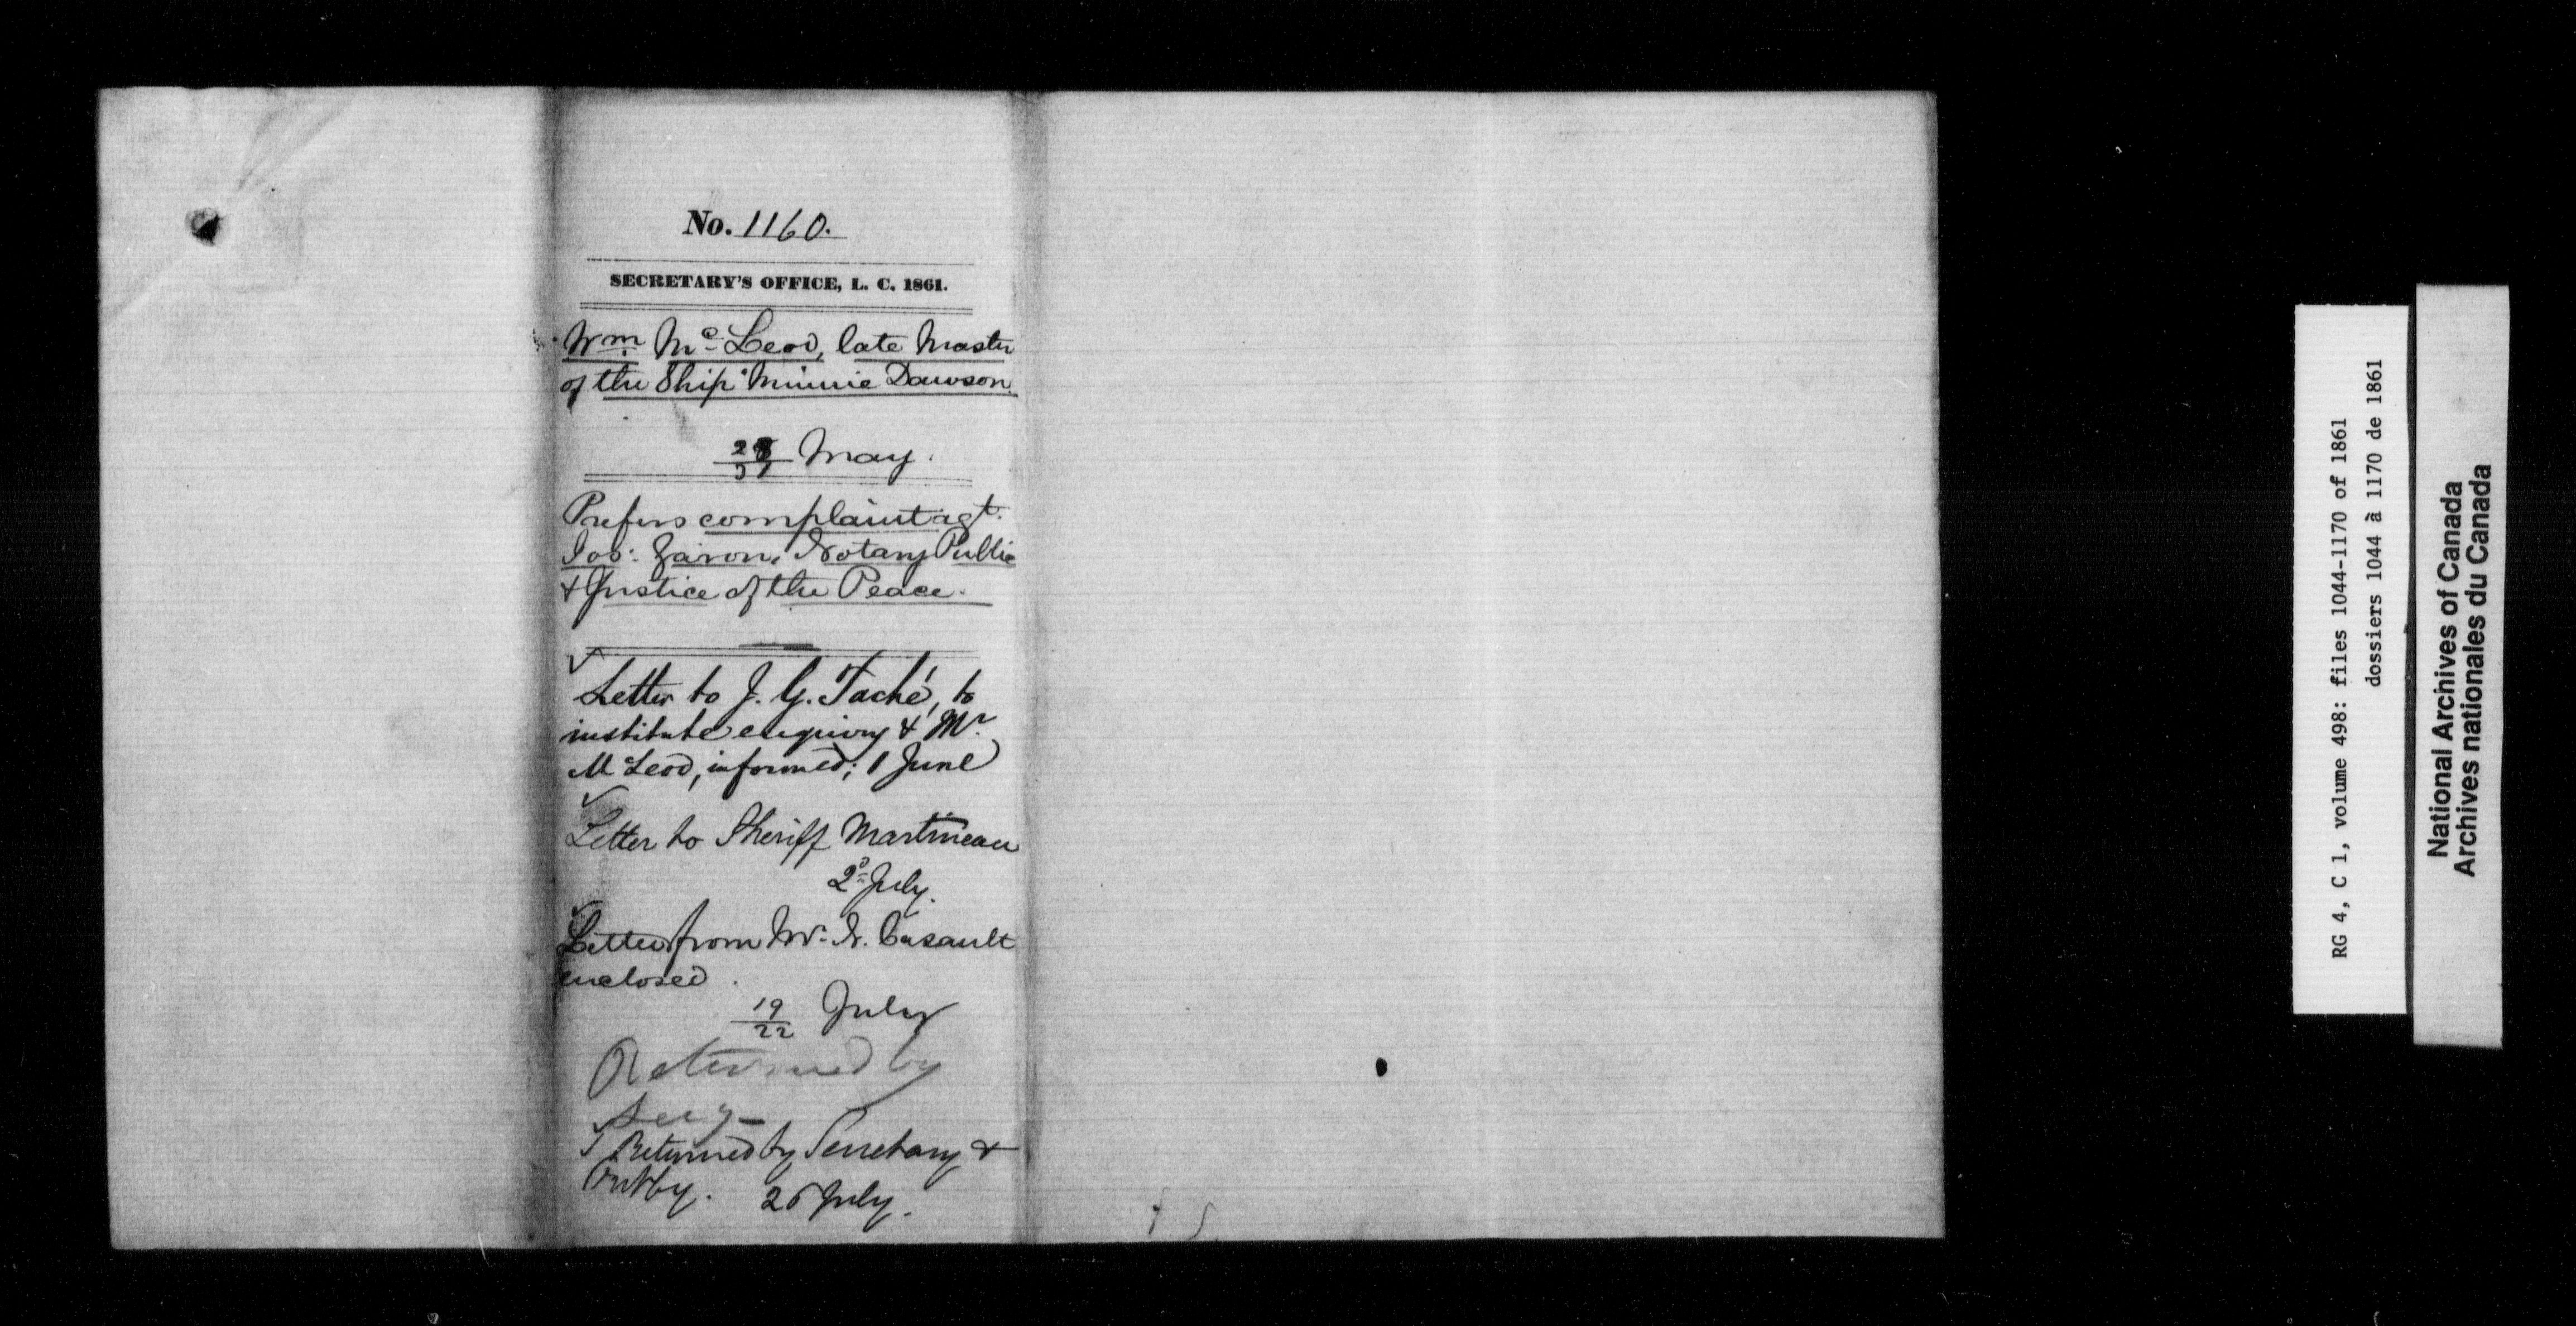 No. 1160.
SECRETARY'S OFFICE, L. C. 1861.
Wm. Mc Leod, late Master
of the Ship "Minnie Dawson.
May.
Prefers complaint agt.
Jos: Garon, Notary Public
& Justice of the Peace.
Letter to J. G. Taché, to
institute enquiry & Mr.
McLeod, informed; 1 June
Letter to Sheriff Martineau
2d July.
Letter from Mr. N. Casault
enclosed.
19/22 July
Returned by
Secy
Returned by Secretary &
26 July.
RG 4, C 1, volume 498: files 1044-1170 of 1861
dossiers 1044 à 1170 de 1861
National Archives of Canada
Archives nationales du Canada